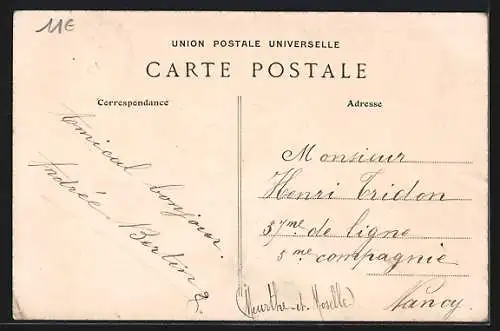 11€
UNION POSTALE UNIVERSELLE
CARTE POSTALE
Correspondance
Adresse
Amical bonjour.
Andrée Bertin
Monsieur
Henri Tridon
37me de ligne
5me compagnie
(Meurthe-et-Moselle) Nancy.